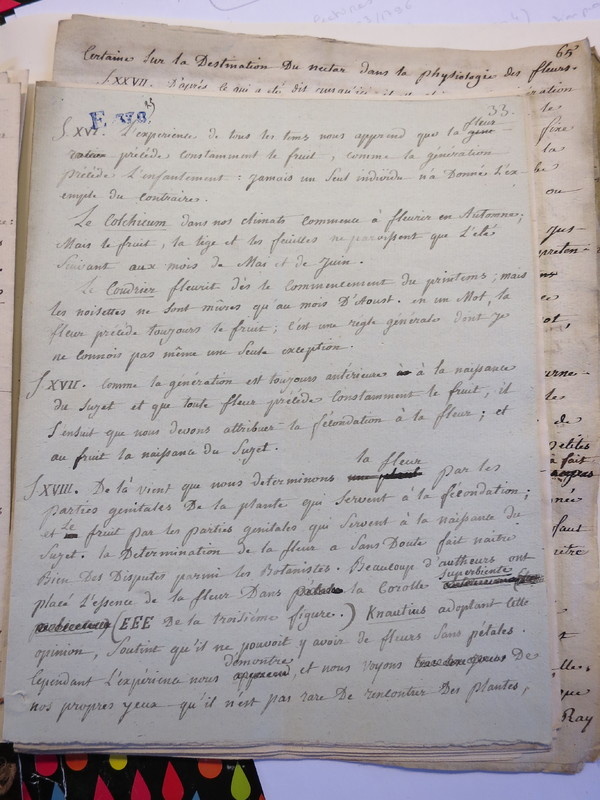 65
Certaine Sur la Destination Du nectar dans la physiologie des fleurs.
§XXVII. D'après ce qui a été dit
33.
fleur
§.XVI. L'experience de tous les tems nous apprend que la
précède constamment le fruit, comme la génération
précède L'enfantement : jamais un Seul individu n'a Donnée L'ex-
emple du contraires.
Le Colchicum dans nos climats commence à fleurir en Automne;
Mais le fruit, la tige et les feuilles ne paroissent que L'eté
Suivant aux mois de Mai et de Juin.
Le Coudrier fleurit dès le Commencement du printems; mais
les noisettes ne Sont mûres qu'au mois D'Aoust. en un Mot, la
fleur précède toujours le fruit; c'est une regle générale dont je
ne connois pas même une Seule exception.
§XVII. Comme la génération est toujours antérieure à la naissance
du Sujet et que toute fleur précède Constamment le fruit, il
S'ensuit que nous devons attribuer la fécondation à la fleur; et
au fruit la naissance du Sujet.
la fleur
§XVIII. De là vient que nous determinons par les
parties genitales De la plante qui Servent à la fécondation;
et Le fruit par les parties genitales qui Servent à la naissance du
Sujet. la Determination de la fleur a Sans Doute fait naitre
Bien Des Disputes parmi les Botanistes. Beaucoup d'autheurs ont
placé L'essence de la fleur Dans la Corolle
(EEE De la troisième figure.) Knautius adoptant cette
opinion, Soutint qu'il ne pouvoit y avoir de fleurs Sans pétales.
demontre
Cependant L'expérience nous apprend, et nous voyons De
nos propres yeux qu'il n'est pas rare De rencontrer Des plantes,
Ray